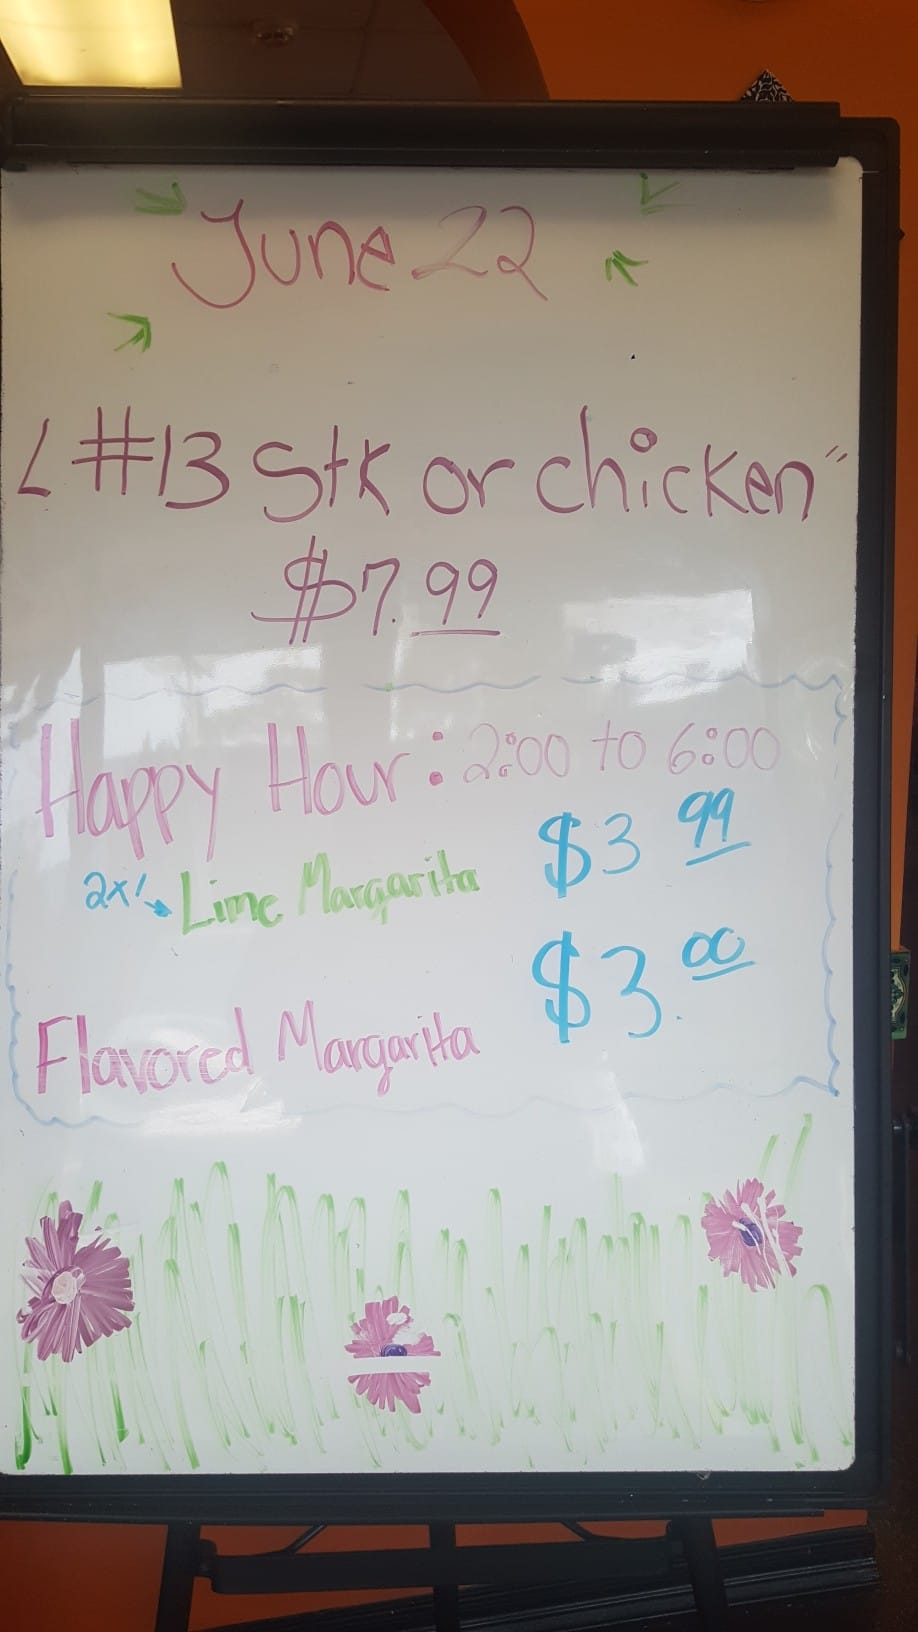 June 22
L #13 Stk or chicken"
$7.99
Happy Hour: 2:00 to 6:00
2x1 Lime Margarita $3 99
Flavored Margarita $3.00